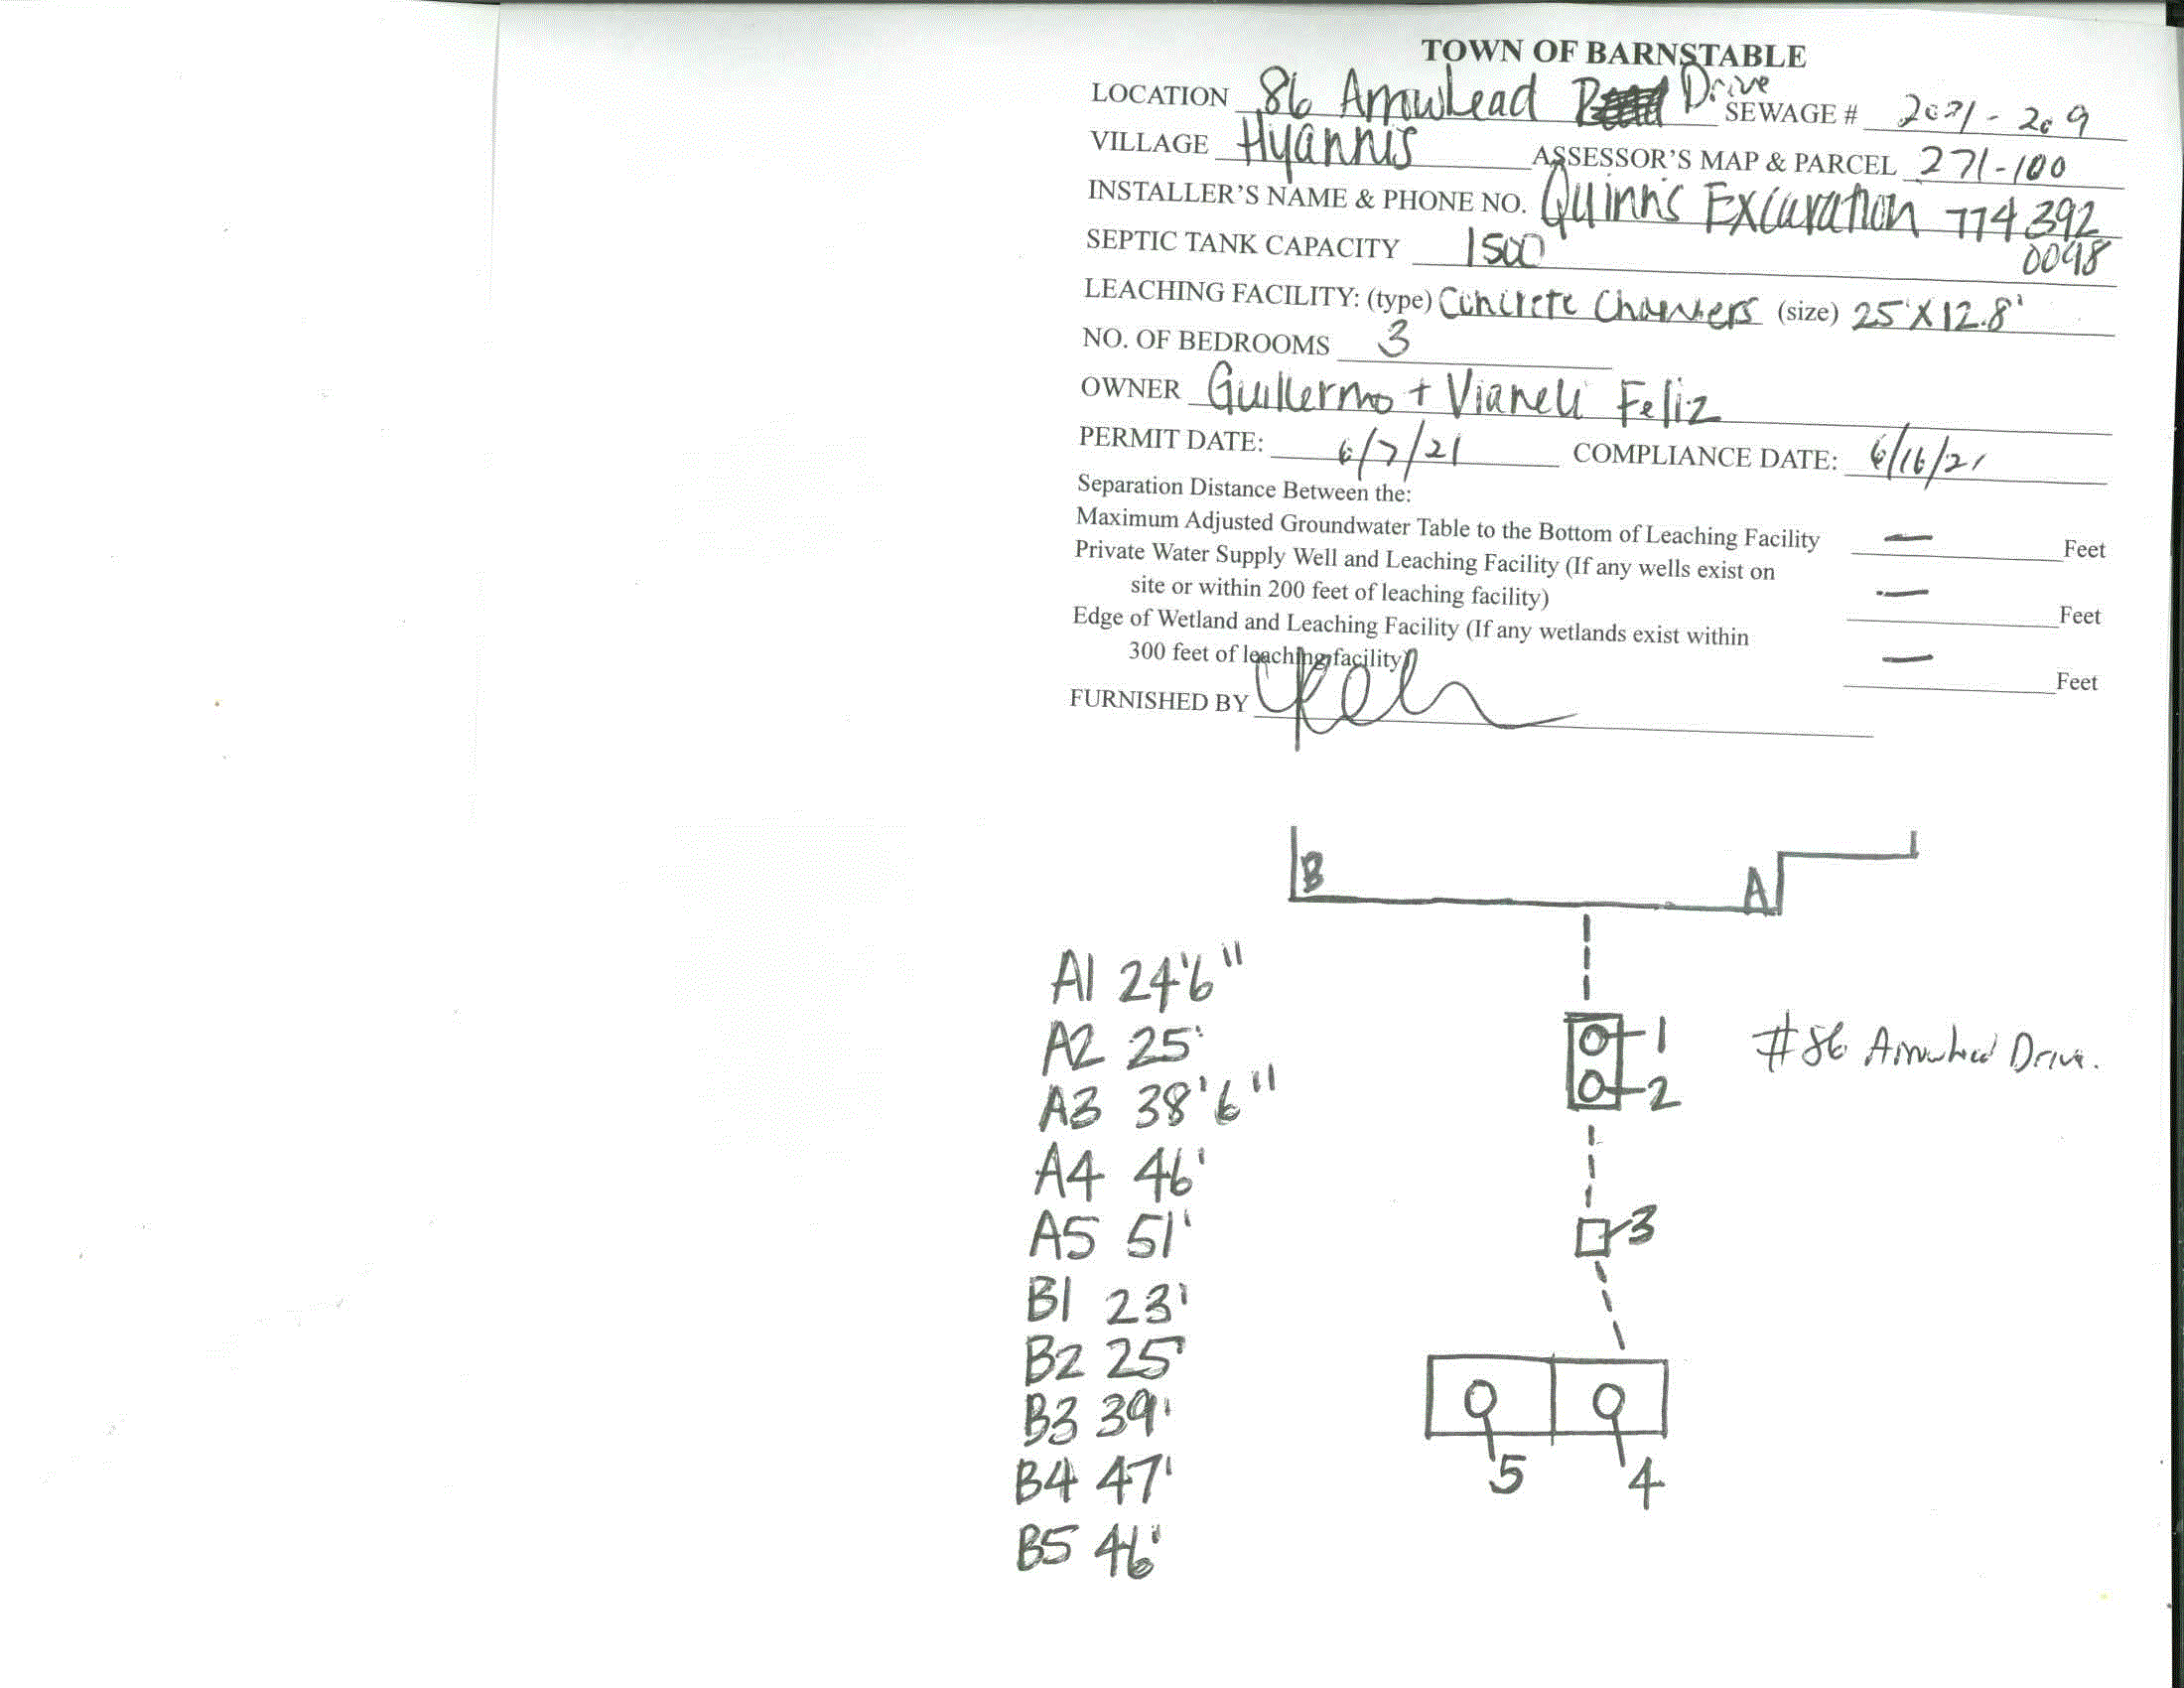 TOWN OF BARNSTABLE
LOCATION 86 Arrowhead Drive SEWAGE # 2021-209
VILLAGE Hyannis ASSESSOR'S MAP & PARCEL 271-100
INSTALLER'S NAME & PHONE NO. Quinn's Excavation 774 392
0098
SEPTIC TANK CAPACITY 1500
LEACHING FACILITY: (type) Concrete Chambers (size) 25'X12.8'
NO. OF BEDROOMS 3
OWNER Guillermo + Vianeli Feliz
PERMIT DATE: 6/7/21 COMPLIANCE DATE: 6/16/21
Separation Distance Between the:
Maximum Adjusted Groundwater Table to the Bottom of Leaching Facility — Feet
Private Water Supply Well and Leaching Facility (If any wells exist on
site or within 200 feet of leaching facility) — Feet
Edge of Wetland and Leaching Facility (If any wetlands exist within
300 feet of leaching facility) — Feet
FURNISHED BY
B A
A1 24'6"
A2 25'
A3 38'6"
A4 46'
A5 51'
B1 23'
B2 25'
B3 39'
B4 47'
B5 46'
1
2
#86 Arrowhead Drive.
3
5 4